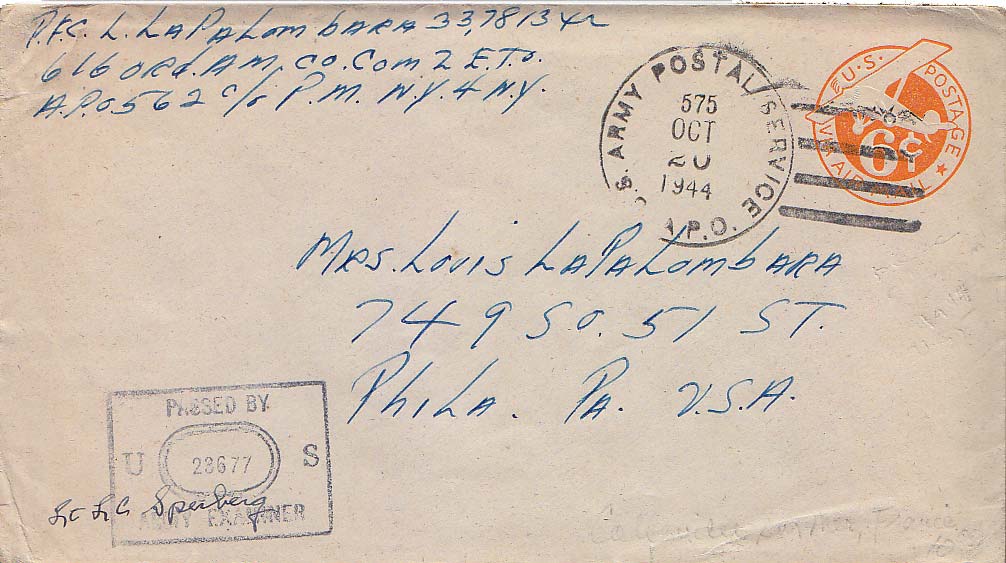 P.F.C. L. LaPaLombara 33,781342
616 Ord. Am. Co. Com 2 E.T.O.
A.P.O. 562 c/o P.M. N.Y. 4 N.Y.
U.S. POSTAGE
6¢
VIA AIR MAIL
S. ARMY POSTAL SERVICE
575
OCT
20
1944
A.P.O.
Mrs. Louis LaPaLombara
749 So. 51 St.
Phila. Pa. U.S.A.
PASSED BY
U 28677 S
ARMY EXAMINER
Sperberg
France